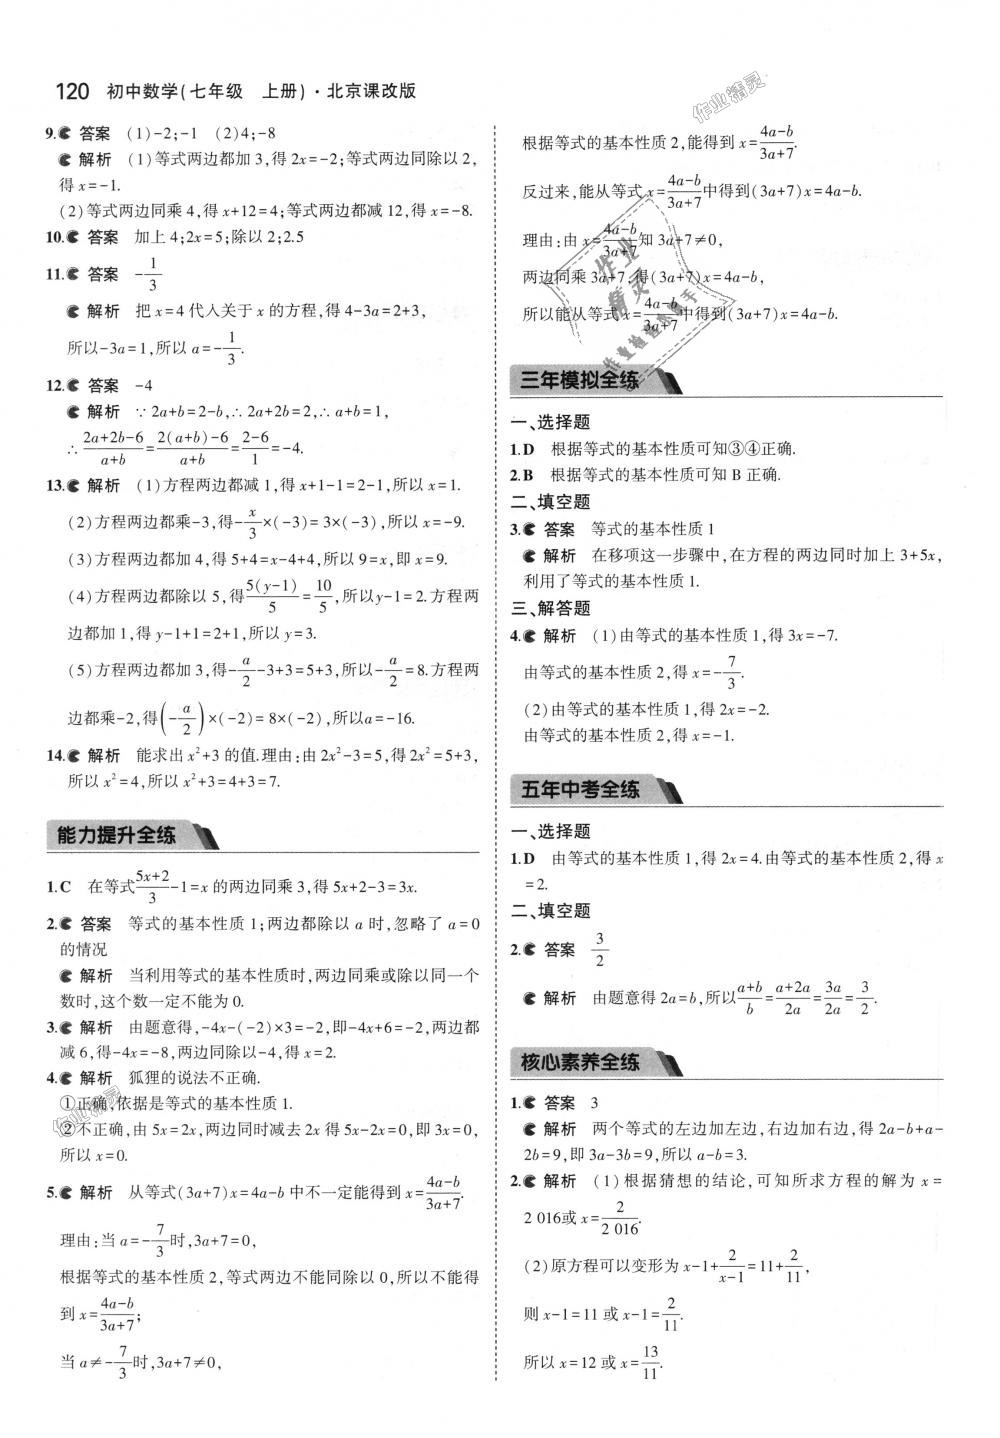 120 初中数学(七年级　上册)·北京课改版
9. 答案　(1)-2;-1　(2)4;-8
解析　(1)等式两边都加 3,得 2x=-2;等式两边同除以 2,
得 x=-1.
(2)等式两边同乘 4,得 x+12=4;等式两边都减 12,得 x=-8.
10. 答案　加上 4;2x=5;除以 2;2.5
11. 答案　-1/3
解析　把 x=4 代入关于 x 的方程,得 4-3a=2+3,
所以-3a=1,所以 a=-1/3.
12. 答案　-4
解析　∵ 2a+b=2-b,∴ 2a+2b=2,∴ a+b=1,
∴ (2a+2b-6)/(a+b)=(2(a+b)-6)/(a+b)=(2-6)/1=-4.
13. 解析　(1)方程两边都减 1,得 x+1-1=2-1,所以 x=1.
(2)方程两边都乘-3,得-x/3×(-3)=3×(-3),所以 x=-9.
(3)方程两边都加 4,得 5+4=x-4+4,所以 9=x,即 x=9.
(4)方程两边都除以 5,得5(y-1)/5=10/5,所以y-1=2.方程两
边都加 1,得 y-1+1=2+1,所以 y=3.
(5)方程两边都加 3,得-a/2-3+3=5+3,所以-a/2=8.方程两
边都乘-2,得(-a/2)×(-2)=8×(-2),所以a=-16.
14. 解析　能求出 x²+3 的值.理由:由 2x²-3=5,得 2x²=5+3,
所以 x²=4,所以 x²+3=4+3=7.
能力提升全练
1.C　在等式(5x+2)/3-1=x 的两边同乘 3,得 5x+2-3=3x.
2. 答案　等式的基本性质 1;两边都除以 a 时,忽略了 a=0
的情况
解析　当利用等式的基本性质时,两边同乘或除以同一个
数时,这个数一定不能为 0.
3. 解析　由题意得,-4x-(-2)×3=-2,即-4x+6=-2,两边都
减 6,得-4x=-8,两边同除以-4,得 x=2.
4. 解析　狐狸的说法不正确.
①正确,依据是等式的基本性质 1.
②不正确,由 5x=2x,两边同时减去 2x 得 5x-2x=0,即 3x=0,
所以 x=0.
5. 解析　从等式(3a+7)x=4a-b 中不一定能得到 x=(4a-b)/(3a+7).
理由:当 a=-7/3时,3a+7=0,
根据等式的基本性质 2,等式两边不能同除以 0,所以不能得
到 x=(4a-b)/(3a+7);
当 a≠-7/3时,3a+7≠0,
根据等式的基本性质 2,能得到 x=(4a-b)/(3a+7).
反过来,能从等式 x=(4a-b)/(3a+7)中得到(3a+7)x=4a-b.
理由:由 x=(4a-b)/(3a+7)知 3a+7≠0,
两边同乘 3a+7,得(3a+7)x=4a-b,
所以能从等式 x=(4a-b)/(3a+7)中得到(3a+7)x=4a-b.
三年模拟全练
一、选择题
1.D　根据等式的基本性质可知③④正确.
2.B　根据等式的基本性质可知 B 正确.
二、填空题
3. 答案　等式的基本性质 1
解析　在移项这一步骤中,在方程的两边同时加上 3+5x,
利用了等式的基本性质 1.
三、解答题
4. 解析　(1)由等式的基本性质 1,得 3x=-7.
由等式的基本性质 2,得 x=-7/3.
(2)由等式的基本性质 1,得 2x=-2.
由等式的基本性质 2,得 x=-1.
五年中考全练
一、选择题
1.D　由等式的基本性质 1,得 2x=4.由等式的基本性质 2,得 x
=2.
二、填空题
2. 答案　3/2
解析　由题意得 2a=b,所以(a+b)/b=(a+2a)/2a=3a/2a=3/2.
核心素养全练
1. 答案　3
解析　两个等式的左边加左边,右边加右边,得 2a-b+a-
2b=9,即 3a-3b=9,所以 a-b=3.
2. 解析　(1)根据猜想的结论,可知所求方程的解为 x=
2 016或 x=2/2 016.
(2)原方程可以变形为 x-1+2/(x-1)=11+2/11,
则 x-1=11 或 x-1=2/11.
所以 x=12 或 x=13/11.
作业精灵
作业精灵
作业精灵